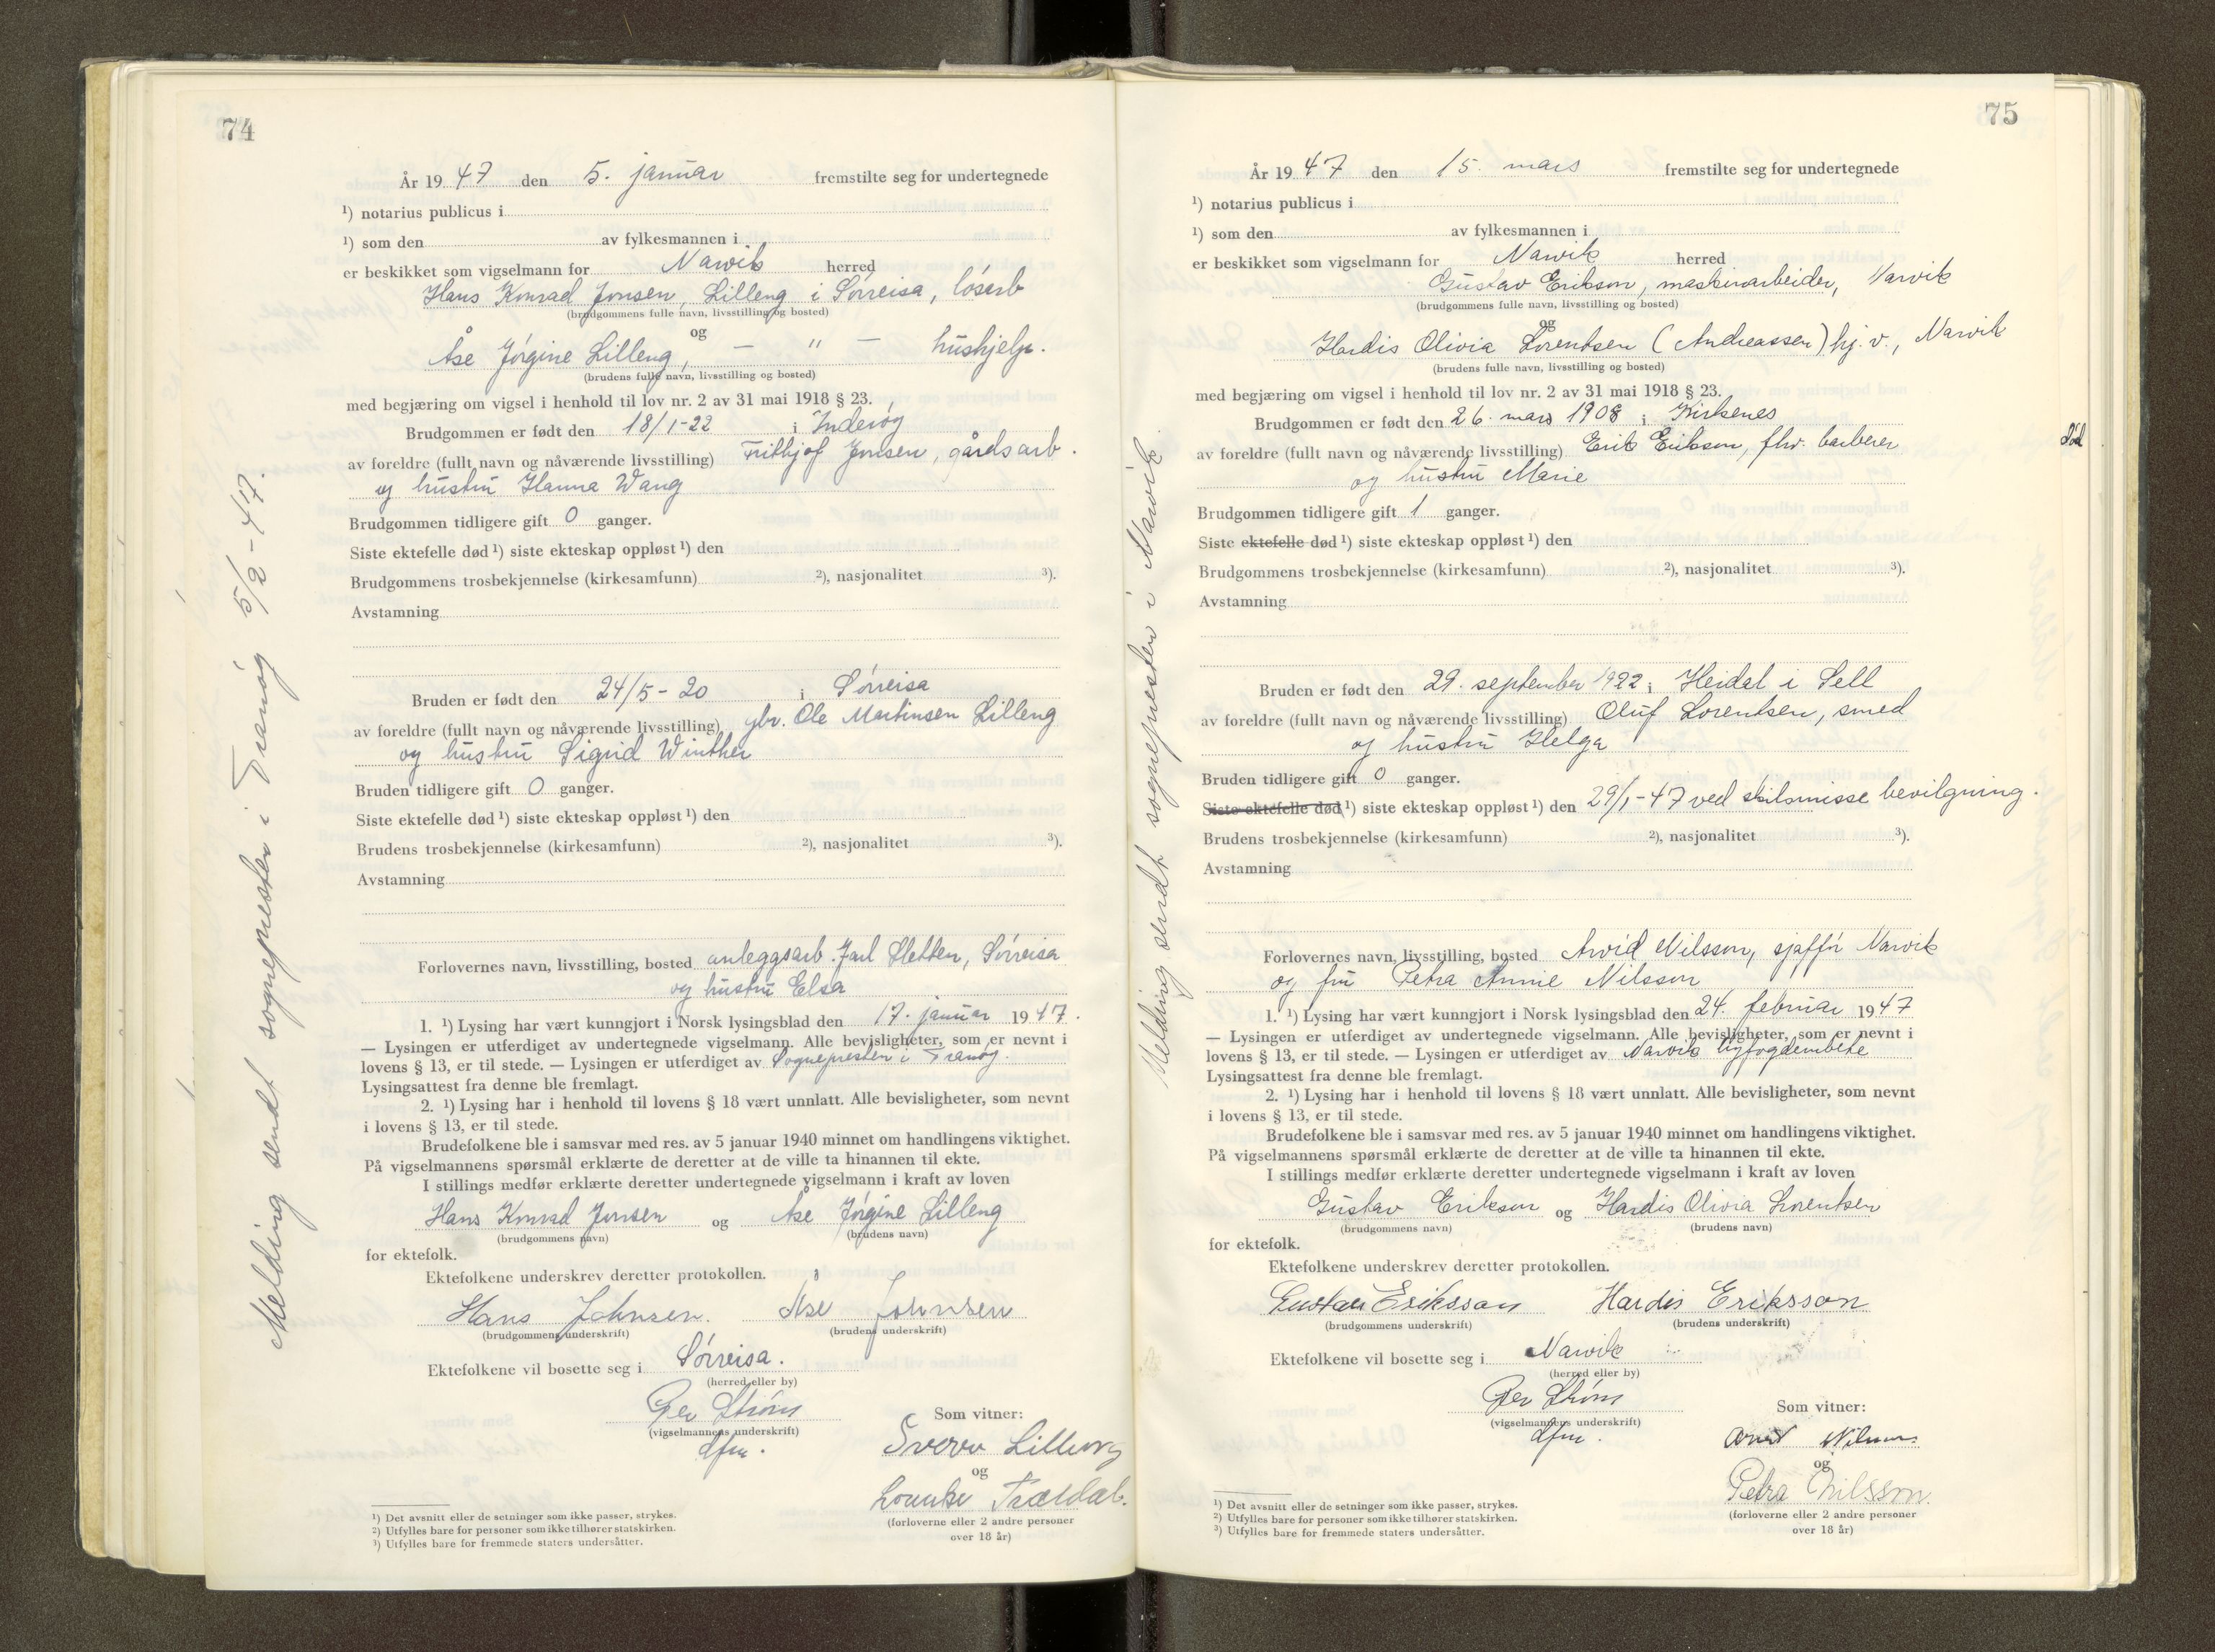 74
År 19 47 den 5. januar fremstilte seg for undertegnede
¹) notarius publicus i
¹) som den av fylkesmannen i
er beskikket som vigselmann for Narvik herred
Hans Konrad Jonsen, Lilleng i Sörreisa, lösarb
(brudgommens fulle navn, livsstilling og bosted)
og
Åse Jörgine Lilleng, — " — hushjelp.
(brudens fulle navn, livsstilling og bosted)
med begjæring om vigsel i henhold til lov nr. 2 av 31 mai 1918 § 23.
Brudgommen er født den 18/1-22 i Inderöy
av foreldre (fullt navn og nåværende livsstilling) Frithjof Jonsen, gårdsarb.
og hustru Hanna Wang
Brudgommen tidligere gift 0 ganger.
Siste ektefelle død ¹) siste ekteskap oppløst ¹) den
Brudgommens trosbekjennelse (kirkesamfunn) ²), nasjonalitet ³).
Avstamning
Bruden er født den 24/5-20 i Sörreisa
av foreldre (fullt navn og nåværende livsstilling) gbr. Ole Martinsen Lilleng
og hustru Sigrid Winther
Bruden tidligere gift 0 ganger.
Siste ektefelle død ¹) siste ekteskap oppløst ¹) den
Brudens trosbekjennelse (kirkesamfunn) ²), nasjonalitet ³).
Avstamning
Forlovernes navn, livsstilling, bosted anleggsarb. Jarl Sletten, Sörreisa
og hustru Elsa
1. ¹) Lysing har vært kunngjort i Norsk lysingsblad den 17. januar 1947.
— Lysingen er utferdiget av undertegnede vigselmann. Alle bevisligheter, som er nevnt i
lovens § 13, er til stede. — Lysingen er utferdiget av Sognepresten i Tranöy.
Lysingsattest fra denne ble fremlagt.
2. ¹) Lysing har i henhold til lovens § 18 vært unnlatt. Alle bevisligheter, som nevnt
i lovens § 13, er til stede.
Brudefolkene ble i samsvar med res. av 5 januar 1940 minnet om handlingens viktighet.
På vigselmannens spørsmål erklærte de deretter at de ville ta hinannen til ekte.
I stillings medfør erklærte deretter undertegnede vigselmann i kraft av loven
Hans Konrad Jonsen og Åse Jörgine Lilleng
(brudgommens navn) (brudens navn)
for ektefolk.
Ektefolkene underskrev deretter protokollen.
Hans Johnsen. Åse Johnsen
(brudgommens underskrift) (brudens underskrift)
Ektefolkene vil bosette seg i Sörreisa.
(herred eller by)
Per Ström
(vigselmannens underskrift)
dfm.
Som vitner:
Sverre Lilleng
og
Trældal.
(forloverne eller 2 andre personer
over 18 år)
¹) Det avsnitt eller de setninger som ikke passer, strykes.
²) Utfylles bare for personer som ikke tilhører statskirken.
³) Utfylles bare for fremmede staters undersåtter.
Melding sendt sognepresten i Tranöy 5/2-47.
75
År 19 47 den 15. mars fremstilte seg for undertegnede
¹) notarius publicus i
¹) som den av fylkesmannen i
er beskikket som vigselmann for Narvik herred
Gustav Erikson, maskinarbeider, Narvik
(brudgommens fulle navn, livsstilling og bosted)
og
Hardis Olivia Lorentsen (Andreassen) hj. v., Narvik
(brudens fulle navn, livsstilling og bosted)
med begjæring om vigsel i henhold til lov nr. 2 av 31 mai 1918 § 23.
Brudgommen er født den 26. mars 1908 i Kirkenes
av foreldre (fullt navn og nåværende livsstilling) Erik Erikson, fhv. barberer
og hustru Marie
Brudgommen tidligere gift 1 ganger.
Siste ektefelle død ¹) siste ekteskap oppløst ¹) den
Brudgommens trosbekjennelse (kirkesamfunn) ²), nasjonalitet ³).
Avstamning
Bruden er født den 29. september 1922 i Heidal i Sell
av foreldre (fullt navn og nåværende livsstilling) Oluf Lorentsen, smed
og hustru Helga
Bruden tidligere gift 0 ganger.
Siste ektefelle død ¹) siste ekteskap oppløst ¹) den 29/1-47 ved skilsmisse bevilgning.
Brudens trosbekjennelse (kirkesamfunn) ²), nasjonalitet ³).
Avstamning
Forlovernes navn, livsstilling, bosted Arvid Nilsson, sjafför Narvik
og fru Petra Annie Nilsson
1. ¹) Lysing har vært kunngjort i Norsk lysingsblad den 24. februar 1947
— Lysingen er utferdiget av undertegnede vigselmann. Alle bevisligheter, som er nevnt i
lovens § 13, er til stede. — Lysingen er utferdiget av Narvik byfogdembete
Lysingsattest fra denne ble fremlagt.
2. ¹) Lysing har i henhold til lovens § 18 vært unnlatt. Alle bevisligheter, som nevnt
i lovens § 13, er til stede.
Brudefolkene ble i samsvar med res. av 5 januar 1940 minnet om handlingens viktighet.
På vigselmannens spørsmål erklærte de deretter at de ville ta hinannen til ekte.
I stillings medfør erklærte deretter undertegnede vigselmann i kraft av loven
Gustav Erikson og Hardis Olivia Lorentsen
(brudgommens navn) (brudens navn)
for ektefolk.
Ektefolkene underskrev deretter protokollen.
Gustav Eriksson Hardis Eriksson
(brudgommens underskrift) (brudens underskrift)
Ektefolkene vil bosette seg i Narvik
(herred eller by)
Per Ström
(vigselmannens underskrift)
dfm.
Som vitner:
Arvid Nilsson
og
Petra Nilsson.
(forloverne eller 2 andre personer
over 18 år)
¹) Det avsnitt eller de setninger som ikke passer, strykes.
²) Utfylles bare for personer som ikke tilhører statskirken.
³) Utfylles bare for fremmede staters undersåtter.
Melding sendt sognepresten i Narvik